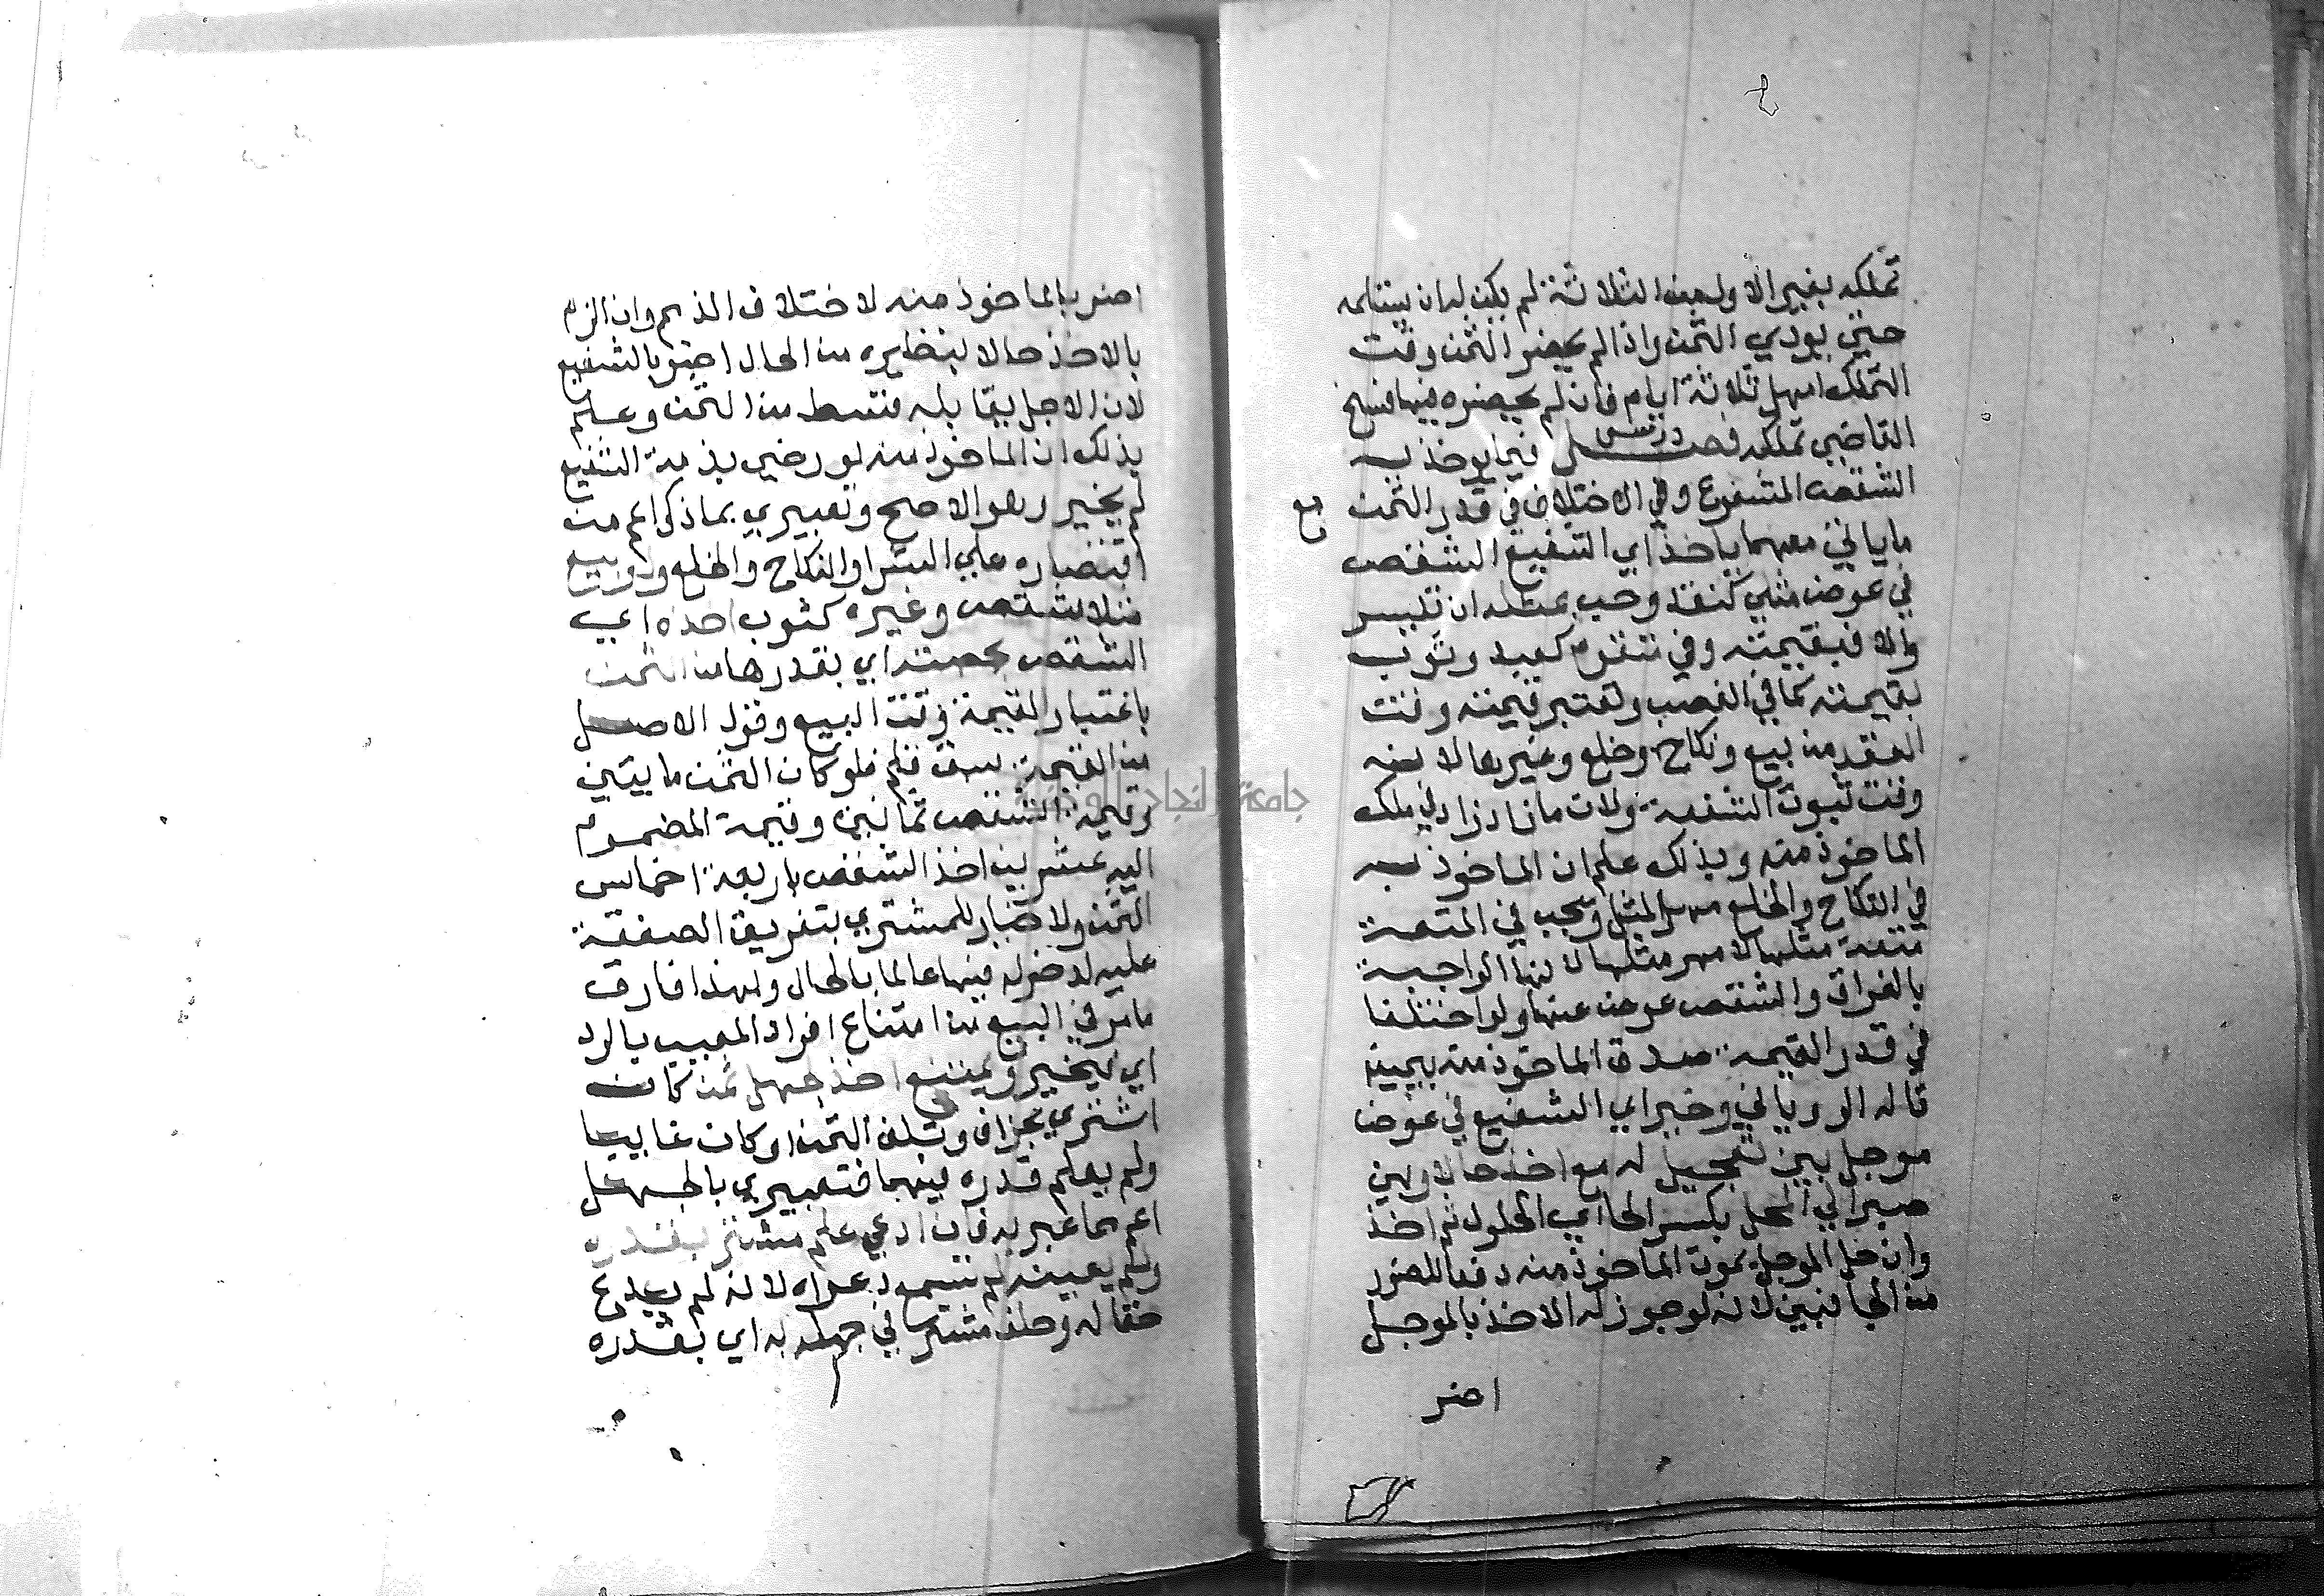 تملكه بغير الاول من الثلاثة لم يكن له ان يتسلمه
حتي يودي الثمن واذا لم يحضر الثمن وقت
التملك امهل ثلاثة ايام فان لم يحضره فيها فسخ
القاضي تملكه فصل فيما يوخذ به
الشقص المشفوع وفي الاختلاف في قدر الثمن مع
ما ياتي معهما ياخذ اي الشفيع الشقص
في عوض مثلي كنقد وحب بمثله ان تيسر
والا فبقيمته وفي متقوم كعبد وثوب
بقيمته كما في الغصب وتعتبر قيمته وقت
العقد من بيع ونكاح وخلع وغيرها لانه
وقت ثبوت الشفعة ولان ما زاد زاد في ملك
الماخوذ منه وبذلك علم ان الماخوذ به
في النكاح والخلع مهر المثل ويجب في المتعة
متعة مثلها لا مهر مثلها لانها الواجبة
بالفراق والشقص عوض عنها ولو اختلفا
في قدر القيمة صدق الماخوذ منه بيمينه
قاله الروياني وخير اي الشفيع في عوض
موجل بين تعجيل له مع اخذ حالا وبين
صبر الي المحل بكسر الحا اي الحلول ثم اخذ
وان حل الموجل بموت الماخوذ منه دفعا للضرر
من الجانبين لانه لو جوز له الاخذ بالموجل
اضر
اضر بالماخوذ منه لاختلاف الذمم وان الزم
بالاخذ حالا بنظيره من الحال اضر بالشفيع
لان الاجل يقابله قسط من الثمن وعلم
بذلك ان الماخوذ منه لو رضي بذمة الشفيع
لم يخير وهو الاصح وتعبيري بما ذكر اعم من
اقتصاره علي الشرا والنكاح والخلع ولو بيع
مثلا شقص وغيره كثوب اخذه اي
الشقص بحصته اي بقدرها من الثمن
باعتبار القيمة وقت البيع وقول الاصل
من القيمة سبق قلم فلو كان الثمن مايتين
وقيمة الشقص ثمانين وقيمة المضموم
اليه عشرين اخذ الشقص باربعة اخماس
الثمن ولا خيار للمشتري بتفريق الصفقة
عليه لدخوله فيها عالما بالحال ولهذا فارق
ما مر في البيع من امتناع افراد المعيب بالرد
اي ويمتنع اخذ جهل ثمن كان
اشتري بجزاف وتلف الثمن او كان غايبا
ولم يعلم قدره فيهما فتعبيري بالجهل
اعم مما عبر به فان ادعي علم مشتر بقدره
ولم يعينه لم تسمع دعواه لانه لم يدع
حقا له وحلف مشتر في جهله به اي بقدره
جامعة النجاح الوطنية